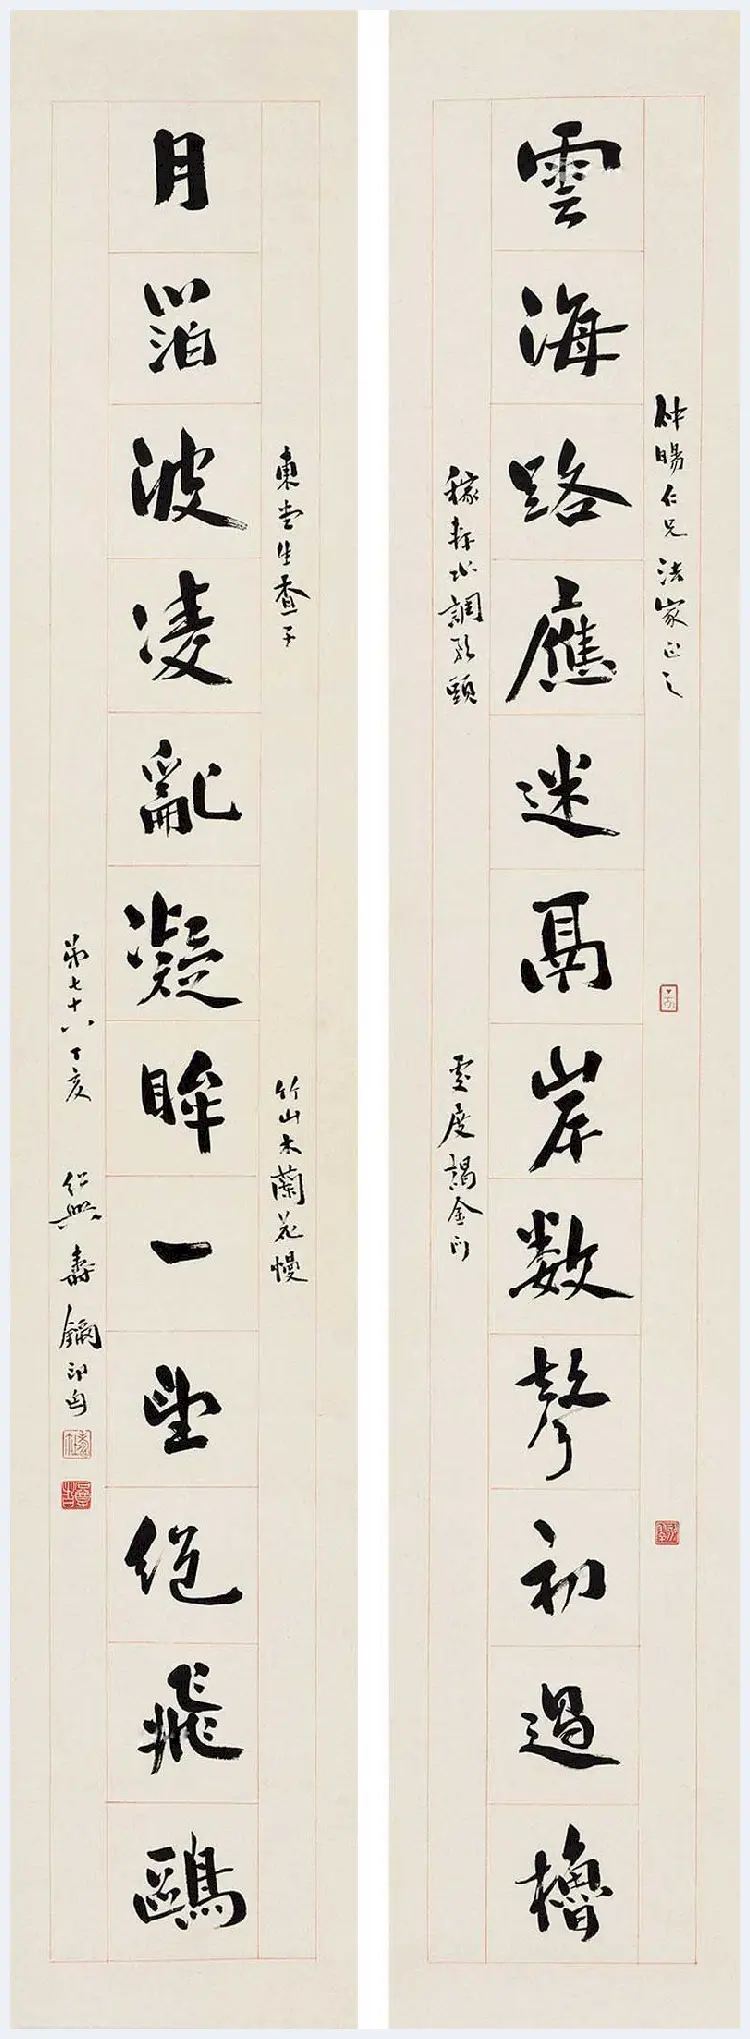 仲暘仁兄法家正之
雲海路應迷鬲岸数聲初過櫓
稼軒水調歌頭
度謁金門
東堂生查子
竹山木蘭花慢
月箔波凌亂凝眸一望絕飛鷗
第七十八丁亥 紹興壽鑈印匄